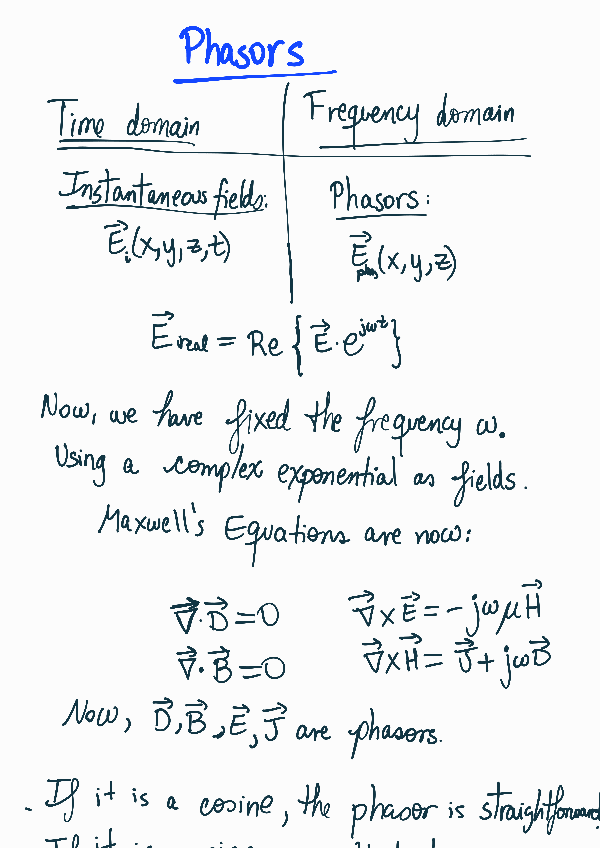 Phasors
Time domain
Frequency domain
Instantaneous fields:
Phasors:
E⃗ᵢ(x,y,z,t)
E⃗(x,y,z)
E⃗real = Re { E⃗·e^{jωt} }
Now, we have fixed the frequency ω.
Using a complex exponential as fields.
Maxwell's Equations are now:
∇⃗·D⃗=0    ∇⃗×E⃗=-jωμH⃗
∇⃗·B⃗=0    ∇⃗×H⃗=J⃗+jωB⃗
Now, D⃗,B⃗,E⃗,J⃗ are phasors.
- If it is a cosine, the phasor is straightforward
If it is